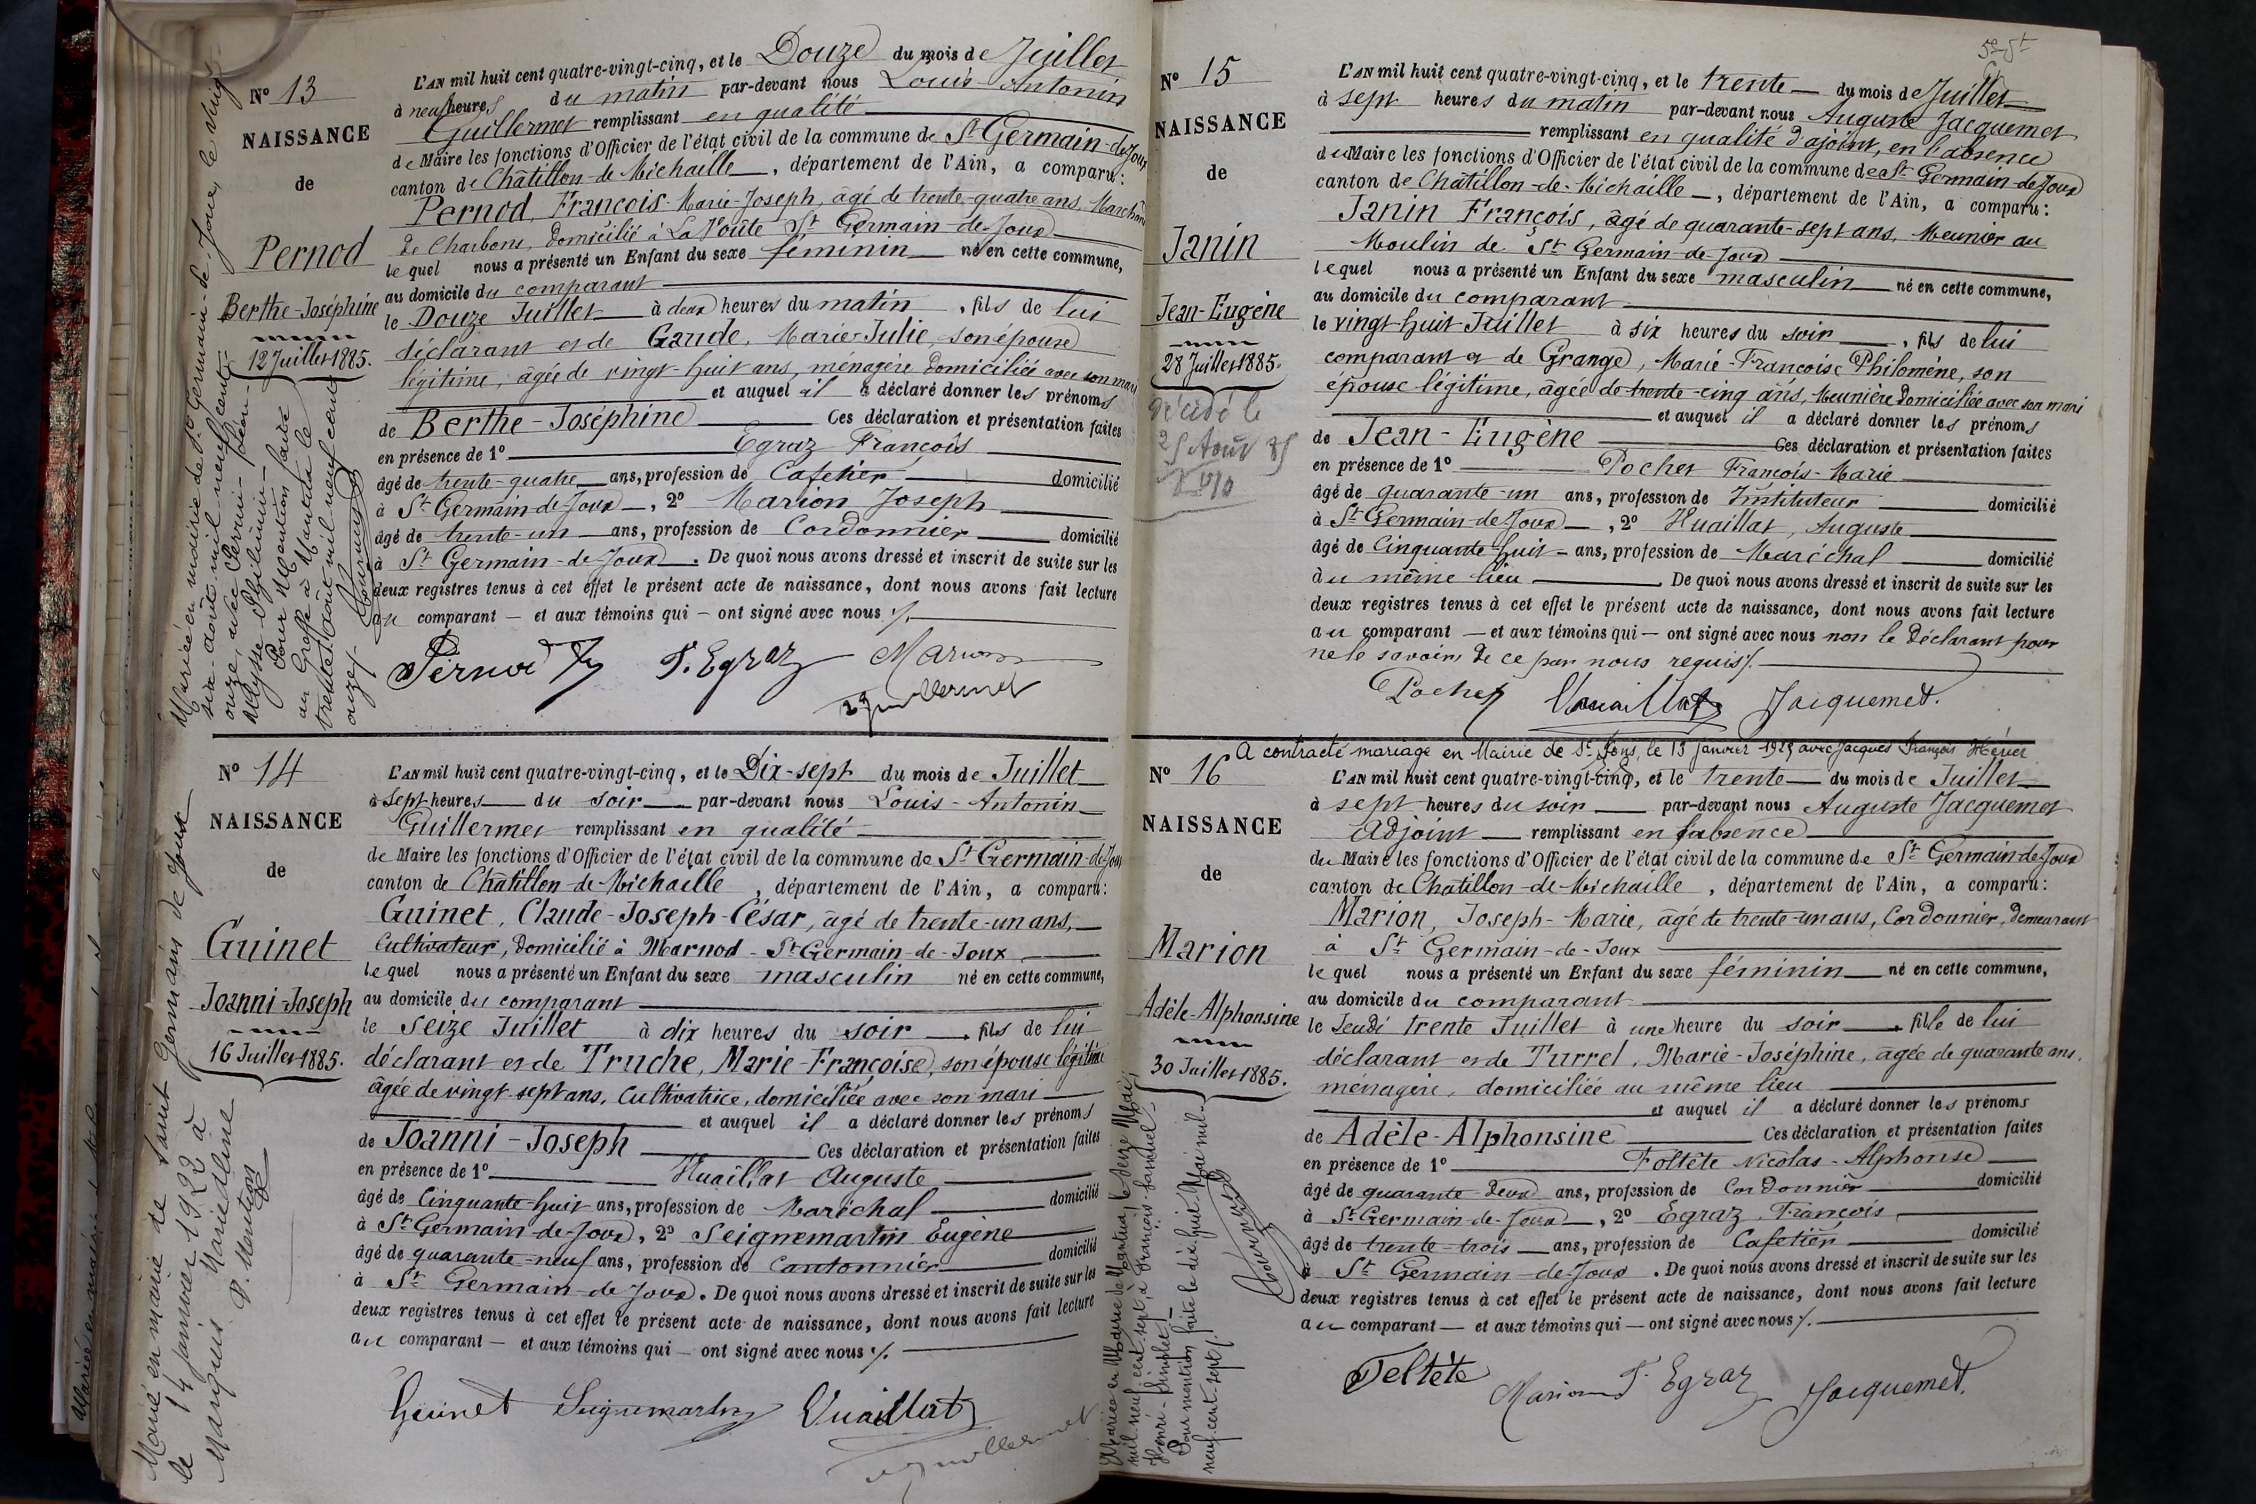 N° 13
NAISSANCE
de
Pernod
Berthe-Joséphine
12 Juillet 1885.
L'AN mil huit cent quatre-vingt-cinq, et le Douze du mois de Juillet
à neuf heures du matin par-devant nous Louis Antonin
Guillermet remplissant en qualité
de Maire les fonctions d'Officier de l'état civil de la commune de St Germain-de-Joux
canton de Châtillon-de-Michaille, département de l'Ain, a comparu:
Pernod, François-Marie-Joseph, âgé de trente-quatre ans, Marchand
de Charbons, domicilié à La Voûte St Germain-de-Joux
le quel nous a présenté un Enfant du sexe féminin né en cette commune,
au domicile du comparant
le Douze Juillet à deux heures du matin, fils de lui
déclarant et de Gaude, Marie-Julie, son épouse
légitime, âgée de vingt-huit ans, ménagère domiciliée avec son mari
et auquel il a déclaré donner les prénoms
de Berthe-Joséphine Ces déclaration et présentation faites
en présence de 1° Egraz François
âgé de trente-quatre ans, profession de Cafetier domicilié
à St Germain-de-Joux, 2° Marion Joseph
âgé de trente-un ans, profession de Cordonnier domicilié
à St Germain-de-Joux. De quoi nous avons dressé et inscrit de suite sur les
deux registres tenus à cet effet le présent acte de naissance, dont nous avons fait lecture
au comparant — et aux témoins qui — ont signé avec nous ./.
Pernod F. Egraz Marion
Guillermet
Mariée en mairie de St Germain-de-Joux, le vingt
six août mil-neuf-cent-
onze, avec Perrin-Jean-
Ulysse-Philemin-
Pour Mention faite
au Greffe à Nantua le
trente août mil neuf cent
onze ./.
N° 14
NAISSANCE
de
Guinet
Joanni-Joseph
16 Juillet 1885.
L'AN mil huit cent quatre-vingt-cinq, et le Dix-sept du mois de Juillet
à Sept heures du soir par-devant nous Louis-Antonin
Guillermet remplissant en qualité
de Maire les fonctions d'Officier de l'état civil de la commune de St Germain-de-Joux
canton de Châtillon-de-Michaille, département de l'Ain, a comparu:
Guinet, Claude-Joseph-César, âgé de trente-un ans,
Cultivateur, domicilié à Marnod-St Germain-de-Joux
le quel nous a présenté un Enfant du sexe masculin né en cette commune,
au domicile du comparant
le Seize Juillet à dix heures du soir, fils de lui
déclarant et de Truche, Marie-Françoise, son épouse légitime
âgée de vingt-sept ans, Cultivatrice, domiciliée avec son mari
et auquel il a déclaré donner les prénoms
de Joanni-Joseph Ces déclaration et présentation faites
en présence de 1° Huaillat Auguste
âgé de Cinquante-huit ans, profession de Maréchal domicilié
à St Germain-de-Joux, 2° Seignemartin Eugène
âgé de quarante-neuf ans, profession de Cantonnier domicilié
à St Germain-de-Joux. De quoi nous avons dressé et inscrit de suite sur les
deux registres tenus à cet effet le présent acte de naissance, dont nous avons fait lecture
au comparant — et aux témoins qui — ont signé avec nous ./.
Guinet Seignemartin Huaillat
Guillermet
Marié en mairie de Saint Germain de Joux
le 14 janvier 1922 à
Marquis Marie Aline
P. Mention
N° 15
NAISSANCE
de
Janin
Jean-Eugène
28 Juillet 1885.
Décédé le
25 Août 85
L'AN mil huit cent quatre-vingt-cinq, et le trente du mois de Juillet
à sept heures du matin par-devant nous Auguste Jacquemet
remplissant en qualité d'ajoint, en l'absence
du Maire les fonctions d'Officier de l'état civil de la commune de St Germain-de-Joux
canton de Châtillon-de-Michaille, département de l'Ain, a comparu:
Janin François, âgé de quarante-sept ans, Meunier au
Moulin de St Germain-de-Joux
le quel nous a présenté un Enfant du sexe masculin né en cette commune,
au domicile du comparant
le vingt-huit Juillet à six heures du soir, fils de lui
comparant et de Grange, Marie-Françoise Philomène, son
épouse légitime, âgée de trente-cinq ans, Meunière domiciliée avec son mari
et auquel il a déclaré donner les prénoms
de Jean-Eugène Ces déclaration et présentation faites
en présence de 1° Pochet François-Marie
âgé de quarante-un ans, profession de Instituteur domicilié
à St Germain-de-Joux, 2° Huaillat, Auguste
âgé de Cinquante-huit ans, profession de Maréchal domicilié
du même lieu. De quoi nous avons dressé et inscrit de suite sur les
deux registres tenus à cet effet le présent acte de naissance, dont nous avons fait lecture
au comparant — et aux témoins qui — ont signé avec nous non le déclarant pour
ne le savoir, de ce par nous requis ./.
Pochet Huaillat Jacquemet.
A contracté mariage en Mairie de St Fons, le 13 janvier 1925 avec Jacques François Hérier
N° 16
NAISSANCE
de
Marion
Adèle-Alphonsine
30 Juillet 1885.
L'AN mil huit cent quatre-vingt-cinq, et le trente du mois de Juillet
à sept heures du soir par-devant nous Auguste Jacquemet
Adjoint remplissant en l'absence
du Maire les fonctions d'Officier de l'état civil de la commune de St Germain-de-Joux
canton de Châtillon-de-Michaille, département de l'Ain, a comparu:
Marion, Joseph-Marie, âgé de trente-un ans, Cordonnier, demeurant
à St Germain-de-Joux
le quel nous a présenté un Enfant du sexe féminin né en cette commune,
au domicile du comparant
le Jeudi trente Juillet à une heure du soir, fille de lui
déclarant et de Turrel, Marie-Joséphine, âgée de quarante ans,
ménagère, domiciliée au même lieu
et auquel il a déclaré donner les prénoms
de Adèle-Alphonsine Ces déclaration et présentation faites
en présence de 1° Foltête Nicolas-Alphonse
âgé de quarante-deux ans, profession de Cordonnier domicilié
à St Germain-de-Joux, 2° Egraz, François
âgé de trente-trois ans, profession de Cafetier domicilié
à St Germain-de-Joux. De quoi nous avons dressé et inscrit de suite sur les
deux registres tenus à cet effet le présent acte de naissance, dont nous avons fait lecture
au comparant — et aux témoins qui — ont signé avec nous ./.
Foltête Marion F. Egraz Jacquemet.
Mariée en Mairie de Nantua, le seize Mai
mil neuf cent sept, à François-Samuel-
Henri-
Pour mention faite le dix huit Mai mil-
neuf-cent-sept ./.